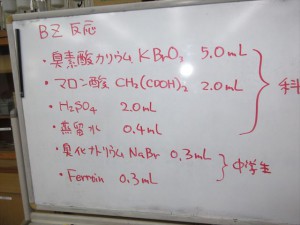 BZ反応
・臭素酸カリウム KBrO₃ 5.0mL
・マロン酸 CH₂(COOH)₂ 2.0mL
・H₂SO₄ 2.0mL
・蒸留水 0.4mL
・臭化ナトリウム NaBr 0.3mL
・Ferroin 0.3mL
科
中学生